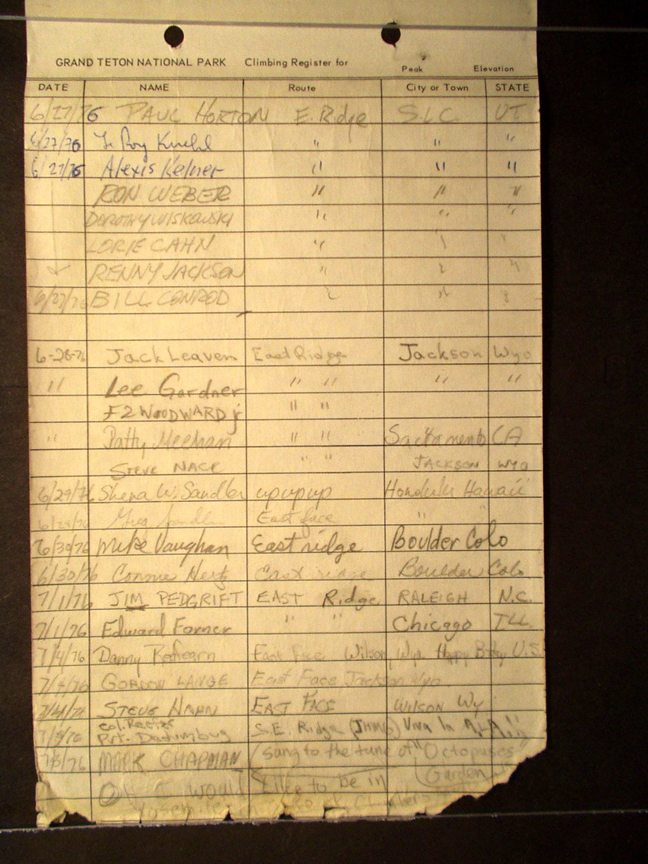 GRAND TETON NATIONAL PARK Climbing Register for
Peak Elevation
DATE NAME Route City or Town STATE
6/27/76 PAUL HORTON E. Ridge S.L.C. UT
6/27/76 Le Roy " " "
6/27/76 Alexis Kelner " " "
RON WEBER " " "
DOROTHY WISKOWSKI " " "
LORIE CAHN " "
RENNY JACKSON " "
6/27/76 BILL CONROD "
6-28-76 Jack Leaven East Ridge Jackson Wyo
" Lee Gardner " " " "
WOODWARD jr " "
" Patty Meehan " " Sacramento CA
STEVE NACE " " JACKSON WYO
6/29/76 Shena W. Sandler upupup Honolulu Hawaii
East face "
6/30/76 Mike Vaughan East ridge Boulder Colo
6/30/76 Connie East ridge Boulder Colo
7/1/76 JIM PEDGRIFT EAST Ridge RALEIGH N.C.
7/1/76 Edward Forner " " Chicago ILL
7/4/76 Danny East Face Wilson, Wyo. Happy B-day U.S.
7/4/76 GORDON LANGE East Face Jackson Wyo
7/4/76 STEVE NAHN EAST FACE WILSON Wy
S.E. Ridge Viva la
MARK CHAPMAN (sung to the tune of "Octopuses"
Garden)
Oh I would like to be in